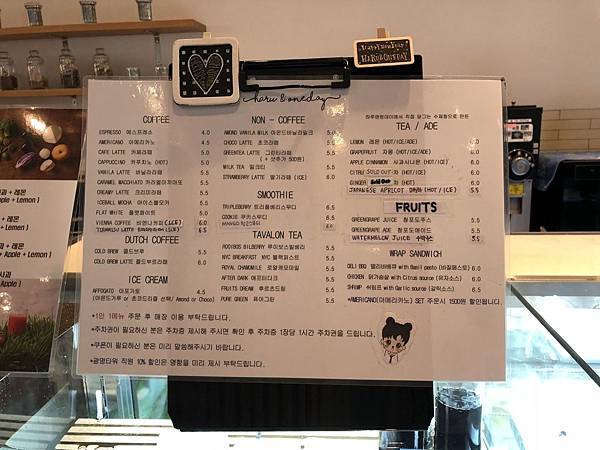 haru & oneday
HARU&ONEDAY
COFFEE
ESPRESSO 에스프레소 4.0
AMERICANO 아메리카노 4.5
CAFE LATTE 카페라떼 5.0
CAPPUCCINO 카푸치노 (HOT) 5.0
VANILA LATTE 바닐라라떼 5.5
CARAMEL MACCHIATO 카라멜마끼아또 5.5
CREAMY LATTE 크리미라떼 5.5
ICEBALL MOCHA 아이스볼모카 5.5
FLAT WHITE 플랫화이트 5.0
VIENNA COFFEE 비엔나커피 (ICE) 6.0
DUTCH COFFEE
COLD BREW 콜드브루 5.0
COLD BREW LATTE 콜드브루라떼 6.0
ICE CREAM
AFFOGATO 아포가토 6.5
(아몬드가루 or 초코드리즐 선택/ Amond or Choco)
NON - COFFEE
AMOND VANILLA MILK 아몬드바닐라밀크 5.0
CHOCO LATTE 초코라떼 5.5
GREENTEA LATTE 그린티라떼 5.5
( + 샷추가 500원)
MILK TEA 밀크티 5.5
STRAWBERRY LATTE 딸기라떼 (ICE) 6.0
SMOOTHIE
TRIPLEBERRY 트리플베리스무디 6.5
COOKIE 쿠키스무디 6.5
MANGO 망고스무디 6.5
TAVALON TEA
ROOIBOS BILBERRY 루이보스빌베리 5.5
NYC BREAKFAST NYC 블랙퍼스트 5.5
ROYAL CHAMOMILE 로얄캐모마일 5.5
AFTER DARK 애프터다크 5.5
FRUITS DREAM 후르츠드림 5.5
PURE GREEN 퓨어그린 5.5
하루앤원데이에서 직접 담그는 수제청으로 만든
TEA / ADE
LEMON 레몬 (HOT/ICE/ADE) 6.0
GRAPEFRUIT 자몽 (HOT/ICE/ADE) 6.0
APPLE CINNAMON 사과시나몬 (HOT/ICE) 6.0
CITRU SOLD OUT 차 (HOT/ICE) 6.0
GINGER Sold Out 차 (HOT) 6.0
JAPANESE APRICOT (HOT/ICE) 5.5
FRUITS
GREENGRAPE JUICE 청포도주스 5.5
GREENGRAPE ADE 청포도에이드 5.5
WATERMELON JUICE 수박주스 5.5
WRAP SANDWICH
DELI BBQ 델리바베큐 with Basil pesto (바질페스토) 6.0
CHICKEN 닭가슴살 with Citrus source (유자소스) 6.0
SHRIMP 쉬림프 with Garlic source (갈릭소스) 6.5
*AMERICANO(아메리카노) SET 주문시 1500원 할인됩니다.
*1인 1메뉴 주문 후 매장 이용 부탁드립니다.
*주차권이 필요하신 분은 주차증 제시해 주시면 확인 후 주차증 1장당 1시간 주차권을 드립니다.
*쿠폰이 필요하신 분은 미리 말씀해주시기 바랍니다.
*광명타워 직원 10% 할인은 명함을 미리 제시 부탁드립니다.
+ 레몬
+ Lemon ]
+ 레몬
Apple + Lemon ]